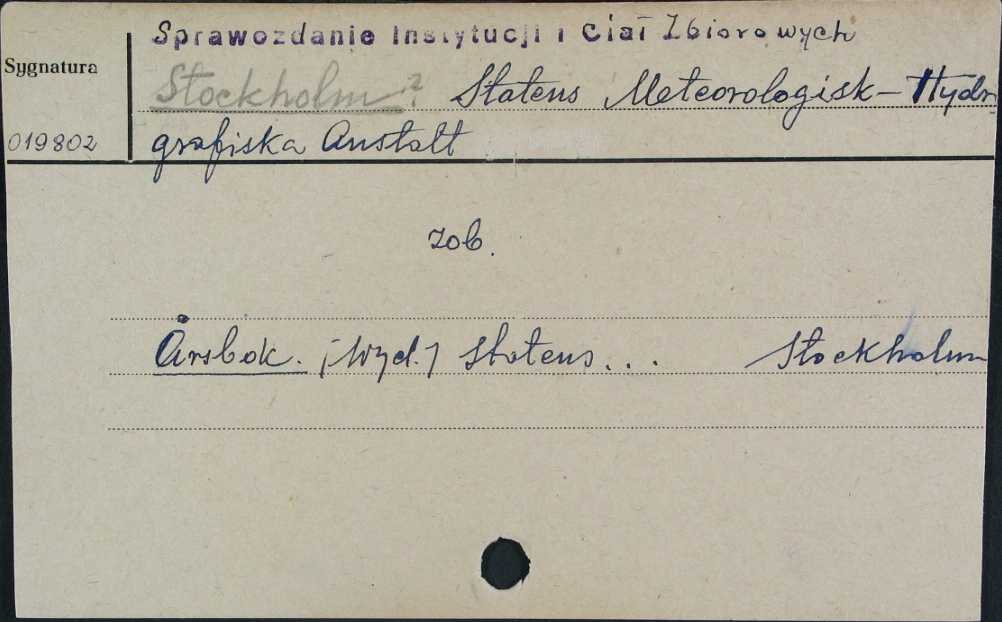 Sprawozdanie Instytucji i Ciał Zbiorowych
Sygnatura
Stockholm? Statens Meteorologisk-Hydro
019802 grafiska Anstalt
zob.
Årsbok. [Wyd.] Statens... Stockholm